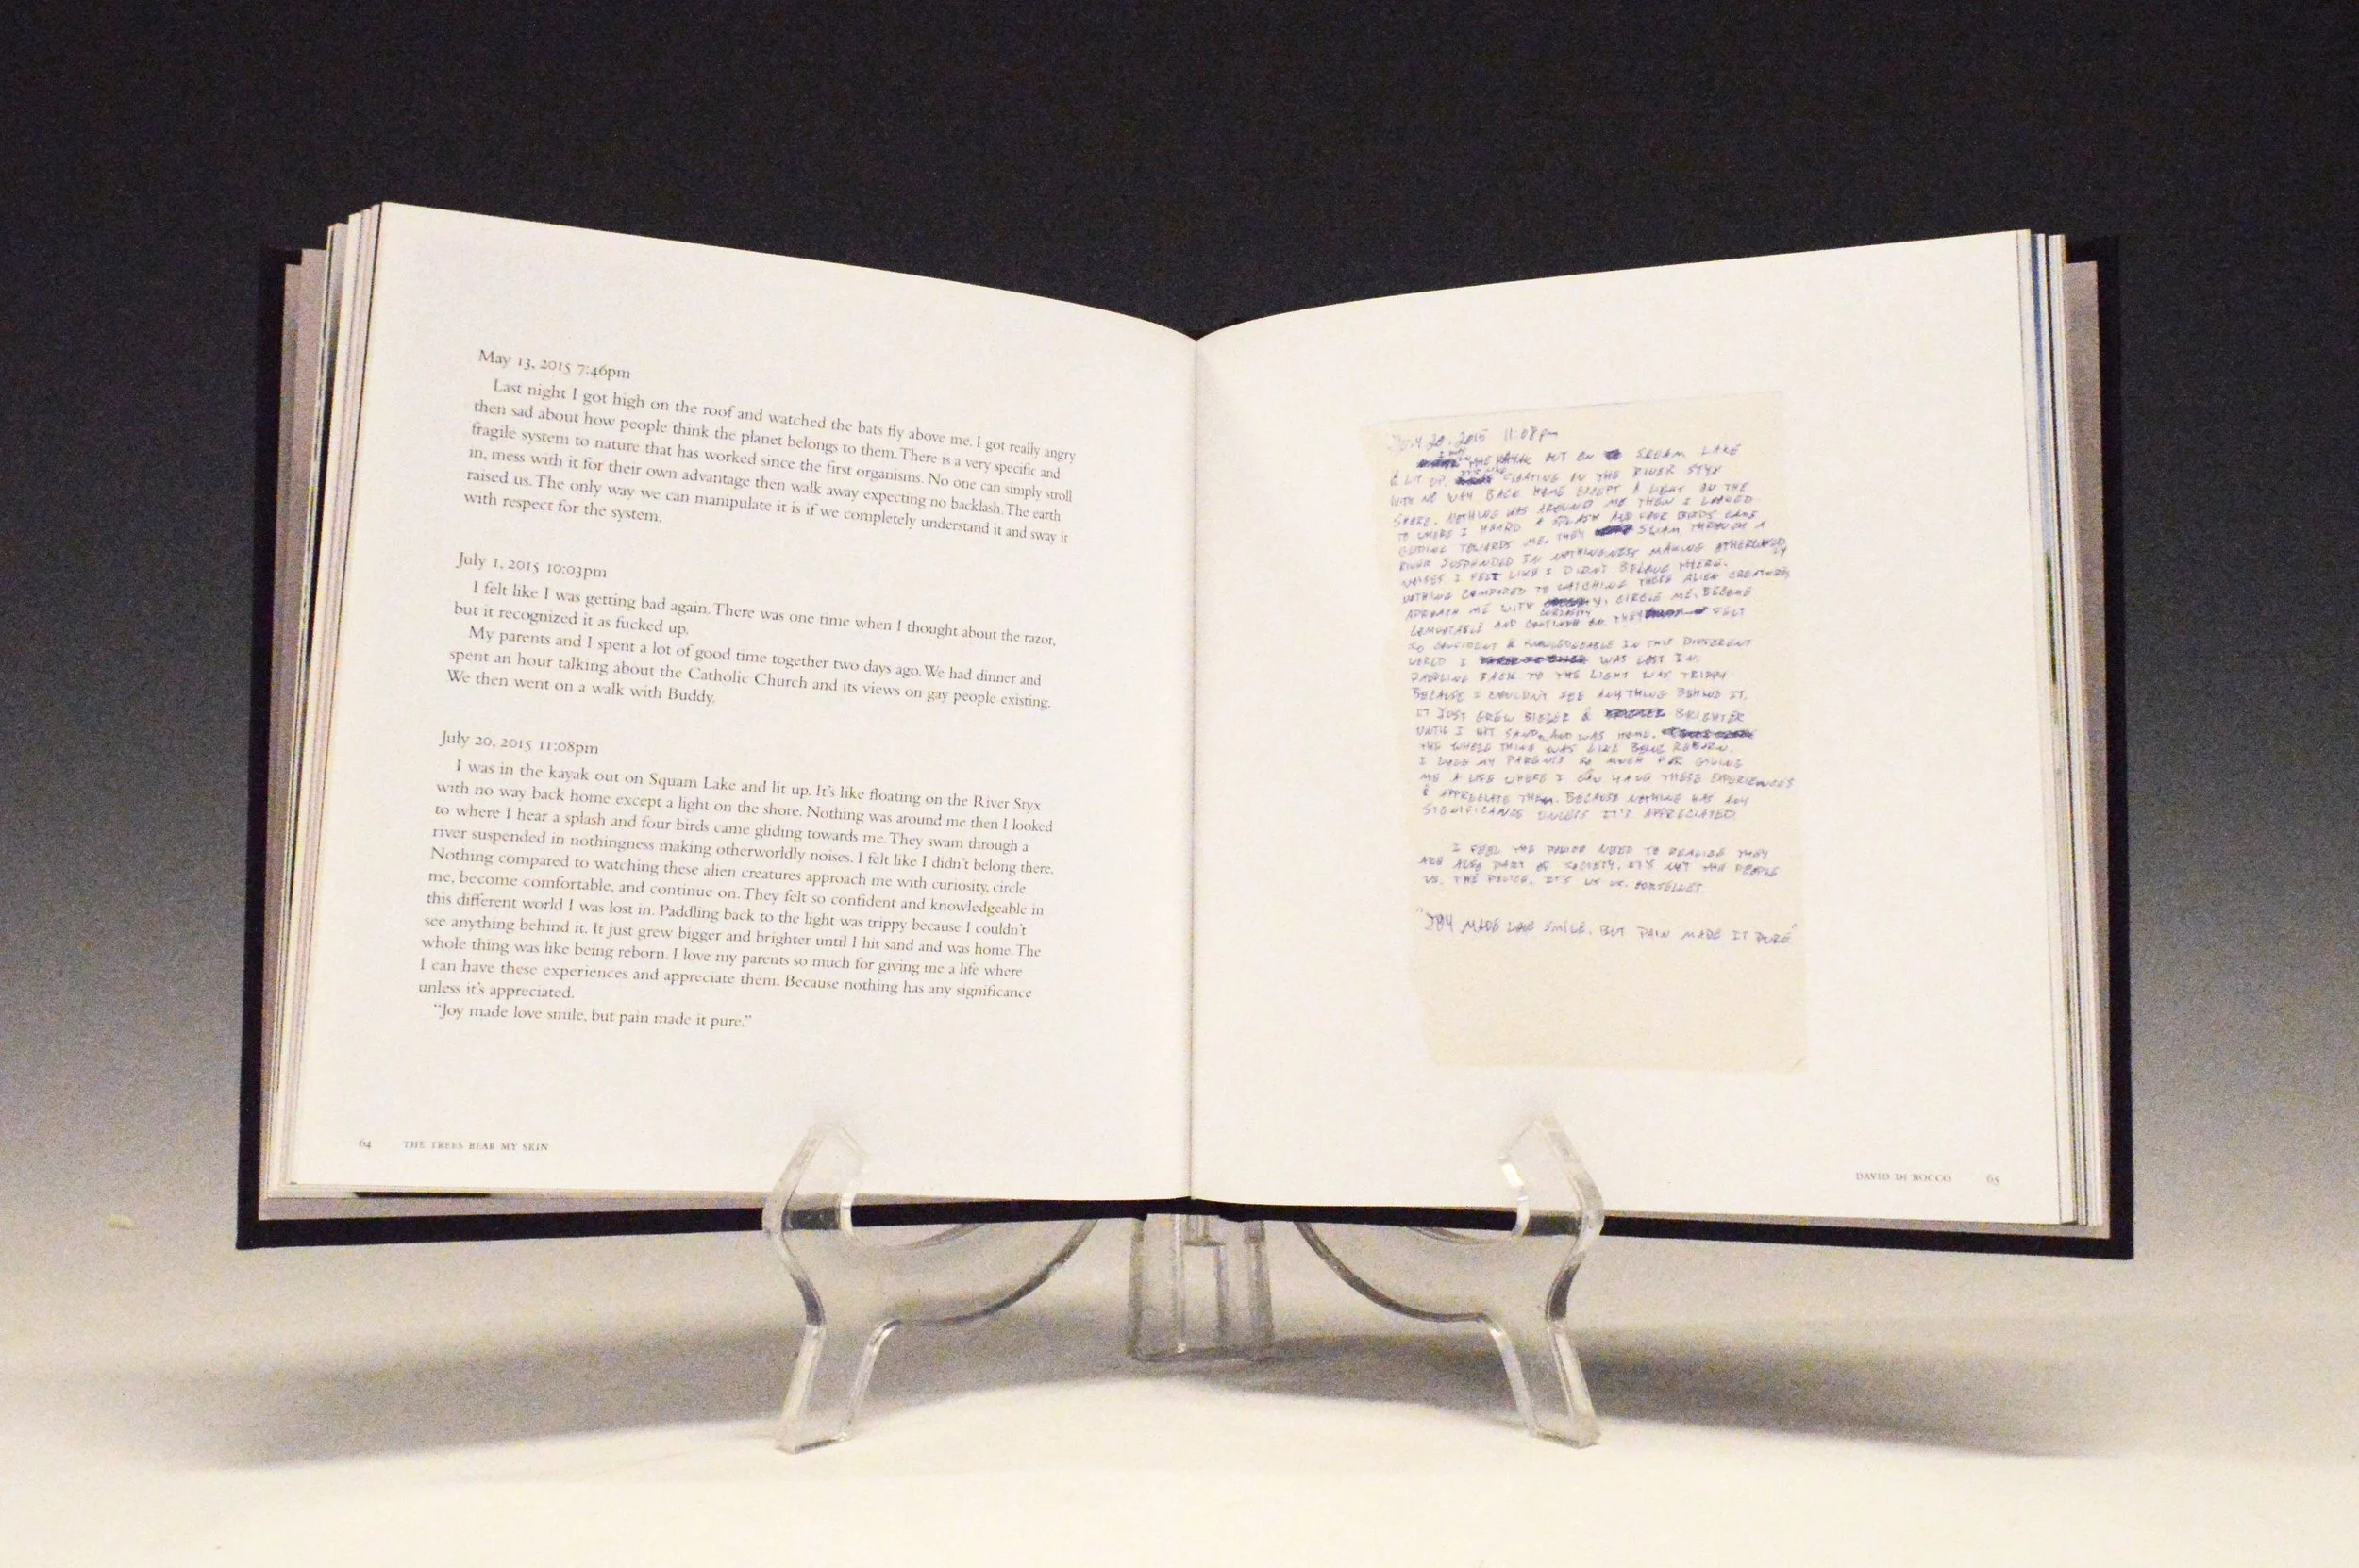 May 13, 2015 7:46pm
Last night I got high on the roof and watched the bats fly above me. I got really angry
then sad about how people think the planet belongs to them. There is a very specific and
fragile system to nature that has worked since the first organisms. No one can simply stroll
in, mess with it for their own advantage then walk away expecting no backlash. The earth
raised us. The only way we can manipulate it is if we completely understand it and sway it
with respect for the system.
July 1, 2015 10:03pm
I felt like I was getting bad again. There was one time when I thought about the razor,
but it recognized it as fucked up.
My parents and I spent a lot of good time together two days ago. We had dinner and
spent an hour talking about the Catholic Church and its views on gay people existing.
We then went on a walk with Buddy.
July 20, 2015 11:08pm
I was in the kayak out on Squam Lake and lit up. It's like floating on the River Styx
with no way back home except a light on the shore. Nothing was around me then I looked
to where I hear a splash and four birds came gliding towards me. They swam through a
river suspended in nothingness making otherworldly noises. I felt like I didn't belong there.
Nothing compared to watching these alien creatures approach me with curiosity, circle
me, become comfortable, and continue on. They felt so confident and knowledgeable in
this different world I was lost in. Paddling back to the light was trippy because I couldn't
see anything behind it. It just grew bigger and brighter until I hit sand and was home. The
whole thing was like being reborn. I love my parents so much for giving me a life where
I can have these experiences and appreciate them. Because nothing has any significance
unless it's appreciated.
"Joy made love smile, but pain made it pure."
64 THE TREES BEAR MY SKIN
20. 2015 11:08pm
THE KAYAK OUT ON LAKE
& LIT UP. FLOATING ON THE RIVER STYX
WITH NO WAY BACK HOME EXCEPT A LIGHT ON THE
SHORE. NOTHING WAS AROUND ME THEN I LOOKED
TO WHERE I HEARD A SPLASH AND FOUR BIRDS CAME
GLIDING TOWARDS ME. THEY SWAM THROUGH A
RIVER SUSPENDED IN NOTHINGNESS MAKING OTHERWORLDLY
NOISES I FELT LIKE I DIDN'T BELONG THERE.
NOTHING COMPARED TO WATCHING THESE ALIEN CREATURES
APROACH ME WITH CURIOSITY, CIRCLE ME, BECOME
COMFORTABLE AND CONTINUE ON. THEY FELT
SO CONFIDENT & KNOWLEDGEABLE IN THIS DIFFERENT
WORLD I WAS LOST IN.
PADDLING BACK TO THE LIGHT WAS TRIPPY
BECAUSE I COULDN'T SEE ANYTHING BEHIND IT.
IT JUST GREW BIGGER & BRIGHTER
UNTIL I HIT SAND AND WAS HOME.
THE WHOLE THING WAS LIKE BEING REBORN.
I LOVE MY PARENTS SO MUCH FOR GIVING
ME A LIFE WHERE I CAN HAVE THESE EXPERIENCES
& APPRECIATE THEM. BECAUSE NOTHING HAS ANY
SIGNIFICANCE UNLESS IT'S APPRECIATED.
I FEEL THE POLICE NEED TO REALIZE THEY
ARE ALSO PART OF SOCIETY. IT'S NOT THE PEOPLE
VS. THE POLICE. IT'S US VS. OURSELVES.
"JOY MADE LOVE SMILE. BUT PAIN MADE IT PURE"
DAVID DI ROCCO 65